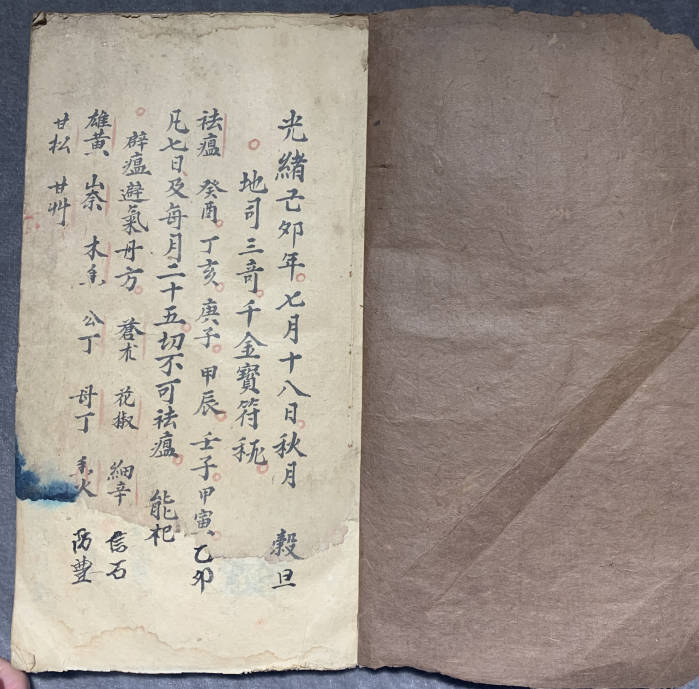 光緒己卯年七月十八日秋月 穀旦
地司三奇千金寶符秘
祛瘟 癸酉丁亥庚子甲辰壬子甲寅乙卯
凡七日及每月二十五切不可祛瘟 能杞
辟瘟避氣丹方 蒼朮 花椒 細辛 信石
雄黃 山奈 木香 公丁 母丁 火 防豊
甘松 甘艸